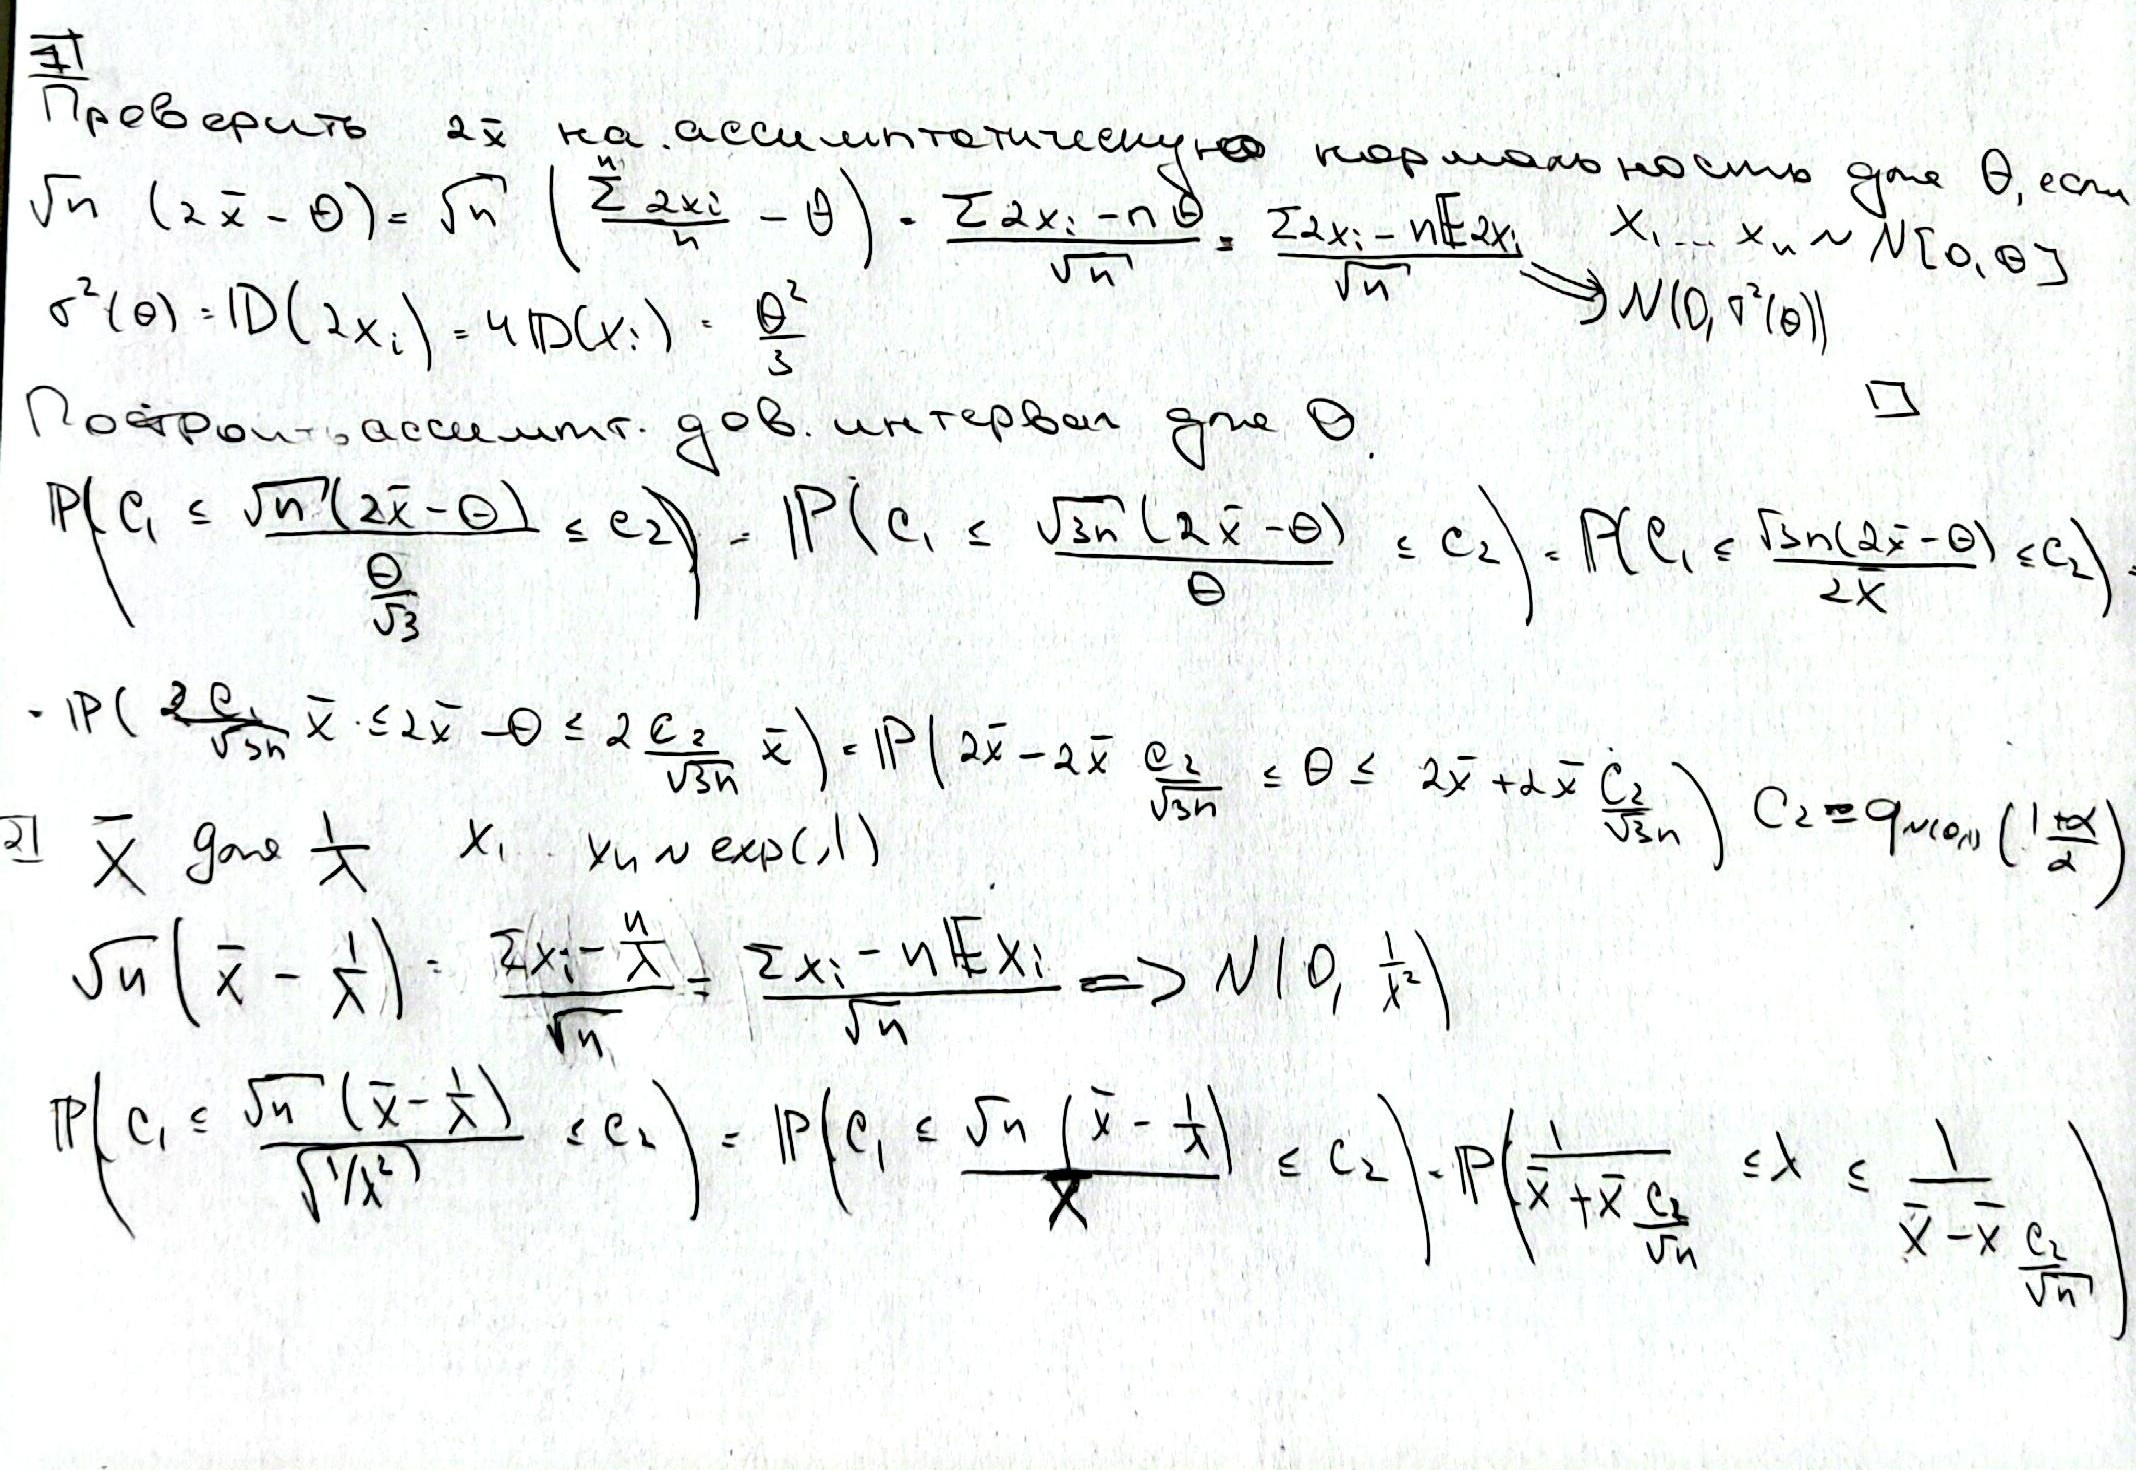 1
Проверить 2x̄ на ассимптотическую нормальность для θ, если
√n (2x̄ - θ) = √n (Σⁿ 2xᵢ / n - θ) = (Σ2xᵢ - nθ) / √n = (Σ2xᵢ - n𝔼2xᵢ) / √n ⟹ N(0, σ²(θ)) x₁ ... xₙ ~ N[0, θ]
σ²(θ) = 𝔻(2xᵢ) = 4𝔻(xᵢ) = θ²/3
□
Построить ассимпт. дов. интервал для θ.
ℙ(c₁ ≤ √n(2x̄-θ) / (θ/√3) ≤ c₂) = ℙ(c₁ ≤ √3n(2x̄-θ) / θ ≤ c₂) = ℙ(c₁ ≤ √3n(2x̄-θ) / 2x̄ ≤ c₂) =
= ℙ(2 c₁/√3n x̄ ≤ 2x̄ - θ ≤ 2 c₂/√3n x̄) = ℙ(2x̄ - 2x̄ c₂/√3n ≤ θ ≤ 2x̄ + 2x̄ c₂/√3n) c₂ = q_N(0,1) ((1+α)/2)
2 X̄ для 1/λ x₁ .. xₙ ~ exp(λ)
√n (x̄ - 1/λ) = (Σxᵢ - n/λ) / √n = (Σxᵢ - n𝔼xᵢ) / √n => N(0, 1/λ²)
ℙ(c₁ ≤ √n (x̄ - 1/λ) / √(1/λ²) ≤ c₂) = ℙ(c₁ ≤ √n (x̄ - 1/λ) / X̄ ≤ c₂) = ℙ(1 / (x̄ + x̄ c₂/√n) ≤ λ ≤ 1 / (x̄ - x̄ c₂/√n))